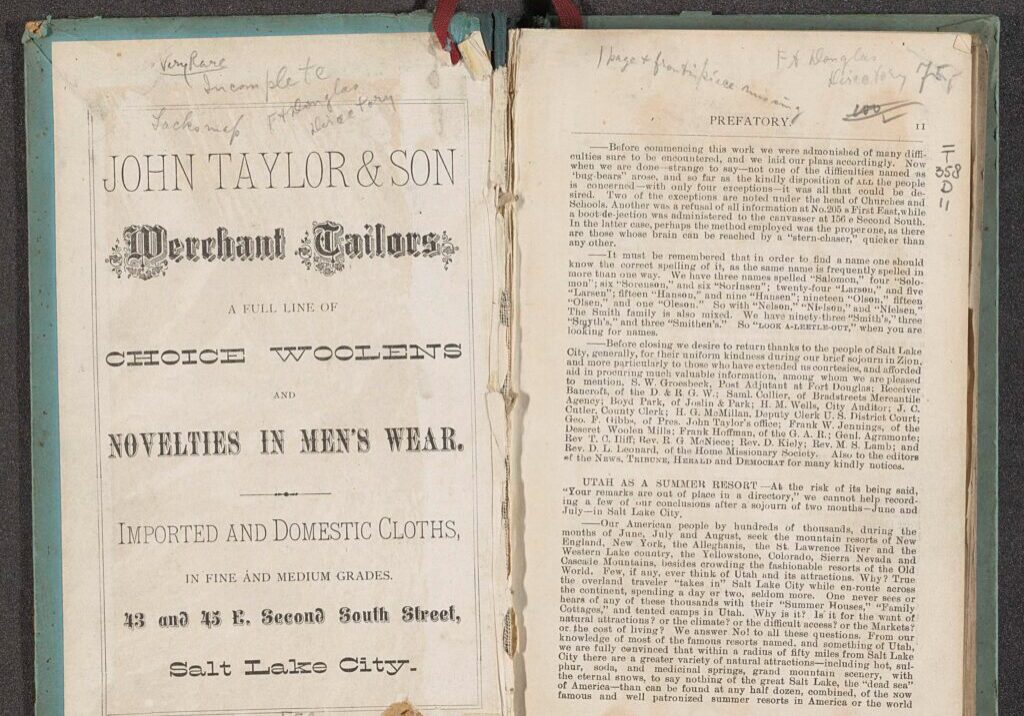 Very Rare
Incomplete
Lacks map
F H Douglas
Directory
JOHN TAYLOR & SON
Merchant Tailors,
A FULL LINE OF
CHOICE WOOLENS
AND
NOVELTIES IN MEN'S WEAR.
IMPORTED AND DOMESTIC CLOTHS,
IN FINE AND MEDIUM GRADES.
43 and 45 E. Second South Street,
Salt Lake City.
1 page & frontispiece missing
F H Douglas
Directory
75
100
PREFATORY.
11
=
T
358
D
11
—Before commencing this work we were admonished of many diffi-
culties sure to be encountered, and we laid our plans accordingly. Now
when we are done—strange to say—not one of the difficulties named as
'bug-bears" arose, and so far as the kindly disposition of ALL the people
is concerned—with only four exceptions—it was all that could be de-
sired. Two of the exceptions are noted under the head of Churches and
Schools. Another was a refusal of all information at No. 205 s First East, while
a boot-de-jection was administered to the canvasser at 156 e Second South.
In the latter case, perhaps the method employed was the proper one, as there
are those whose brain can be reached by a "stern-chaser," quicker than
any other.
—It must be remembered that in order to find a name one should
know the correct spelling of it, as the same name is frequently spelled in
more than one way. We have three names spelled "Salomon," four "Solo-
mon"; six "Sorenson," and six "Sorinsen"; twenty-four "Larson," and five
"Larsen"; fifteen "Hanson," and nine "Hansen"; nineteen "Olson," fifteen
"Olsen," and one "Oleson." So with "Nelson," "Nielson," and "Nielsen."
The Smith family is also mixed. We have ninety-three "Smith's," three
"Smyth's," and three "Smithen's." So "LOOK A-LEETLE-OUT," when you are
looking for names.
—Before closing we desire to return thanks to the people of Salt Lake
City, generally, for their uniform kindness during our brief sojourn in Zion,
and more particularly to those who have extended us courtesies, and afforded
aid in procuring much valuable information, among whom we are pleased
to mention, S. W. Groesbeck, Post Adjutant at Fort Douglas; Receiver
Bancroft, of the D. & R G. W.; Saml. Collier, of Bradstreets Mercantile
Agency; Boyd Park, of Joslin & Park; H. M. Wells, City Auditor; J. C.
Cutler, County Clerk; H. G. McMillan, Deputy Clerk U. S. District Court;
Geo. F. Gibbs, of Pres. John Taylor's office; Frank W. Jennings, of the
Deseret Woolen Mills; Frank Hoffman, of the G. A. R.; Genl. Agramonte;
Rev T. C. Iliff; Rev. R. G McNiece; Rev. D. Kiely; Rev. M. S. Lamb; and
Rev. D. L. Leonard, of the Home Missionary Society. Also to the editors
of the NEWS, TRIBUNE, HERALD and DEMOCRAT for many kindly notices.
UTAH AS A SUMMER RESORT—At the risk of its being said,
"Your remarks are out of place in a directory," we cannot help record-
ing a few of our conclusions after a sojourn of two months—June and
July—in Salt Lake City.
—Our American people by hundreds of thousands, during the
months of June, July and August, seek the mountain resorts of New
England, New York, the Alleghanis, the St. Lawrence River and the
Western Lake country, the Yellowstone, Colorado, Sierra Nevada and
Cascade Mountains, besides crowding the fashionable resorts of the Old
World. Few, if any, ever think of Utah and its attractions. Why? True
the overland traveler "takes in" Salt Lake City while en-route across
the continent, spending a day or two, seldom more. One never sees or
hears of any of these thousands with their "Summer Houses," "Family
Cottages," and tented camps in Utah. Why is it? Is it for the want of
natural attractions? or the climate? or the difficult access? or the Markets?
or the cost of living? We answer No! to all these questions. From our
knowledge of most of the famous resorts named, and something of Utah,
we are fully convinced that within a radius of fifty miles from Salt Lake
City there are a greater variety of natural attractions—including hot, sul-
phur, soda, and medicinal springs, grand mountain scenery, with
the eternal snows, to say nothing of the great Salt Lake, the "dead sea"
of America—than can be found at any half dozen, combined, of the now
famous and well patronized summer resorts in America or the world